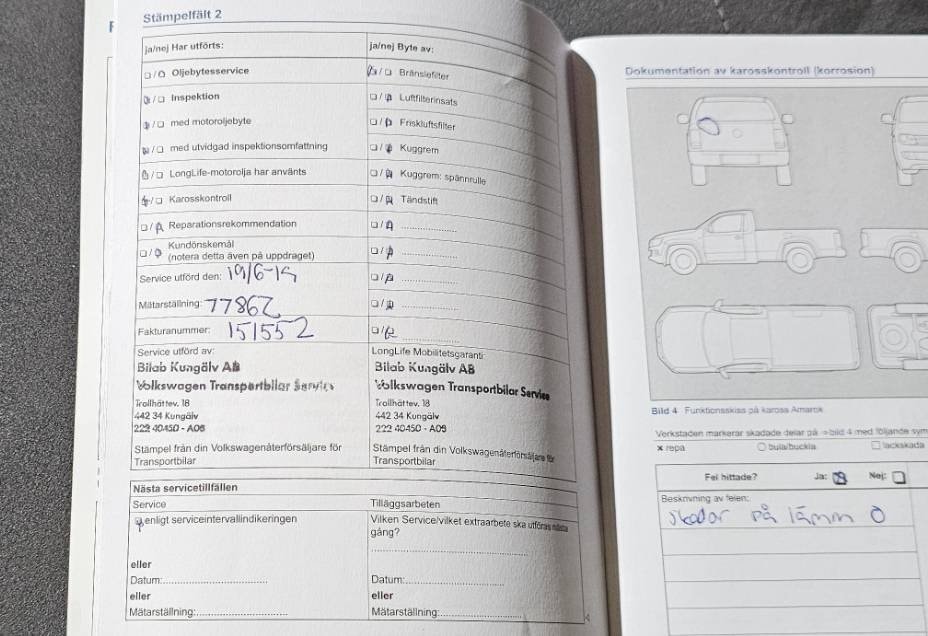 Stämpelfält 2
ja/nej Har utförts:
ja/nej Byte av:
Oljebytesservice
Bränslefilter
Inspektion
Luftfilterinsats
med motoroljebyte
Friskluftsfilter
med utvidgad inspektionsomfattning
Kuggrem
LongLife-motorolja har använts
Kuggrem: spännrulle
Karosskontroll
Tändstift
Reparationsrekommendation
Kundönskemål
(notera detta även på uppdraget)
Service utförd den: 19/6-19
Mätarställning: 77862
Fakturanummer: 151552
Service utförd av:
LongLife Mobilitetsgaranti:
Bilab Kungälv AB
Volkswagen Transportbilar Service
Trollhättev. 18
442 34 Kungälv
222 40450 - A06
Bilab Kungälv AB
Volkswagen Transportbilar Service
Trollhättev. 18
442 34 Kungälv
222 40450 - A06
Stämpel från din Volkswagenåterförsäljare för
Transportbilar
Stämpel från din Volkswagenåterförsäljare för
Transportbilar
Nästa servicetillfällen
Service
Tilläggsarbeten
enligt serviceintervallindikeringen
Vilken Service/vilket extraarbete ska utföras nästa
gång?
eller
Datum:
Datum:
eller
eller
Mätarställning:
Mätarställning:
Dokumentation av karosskontroll (korrosion)
Bild 4 Funktionsskiss på kaross Amarok
Verkstaden markerar skadade delar på ⇒ bild 4 med följande sym
x repa
bula/buckla
lackskada
Fel hittade? Ja: Nej:
Beskrivning av felen:
skador på lämm O